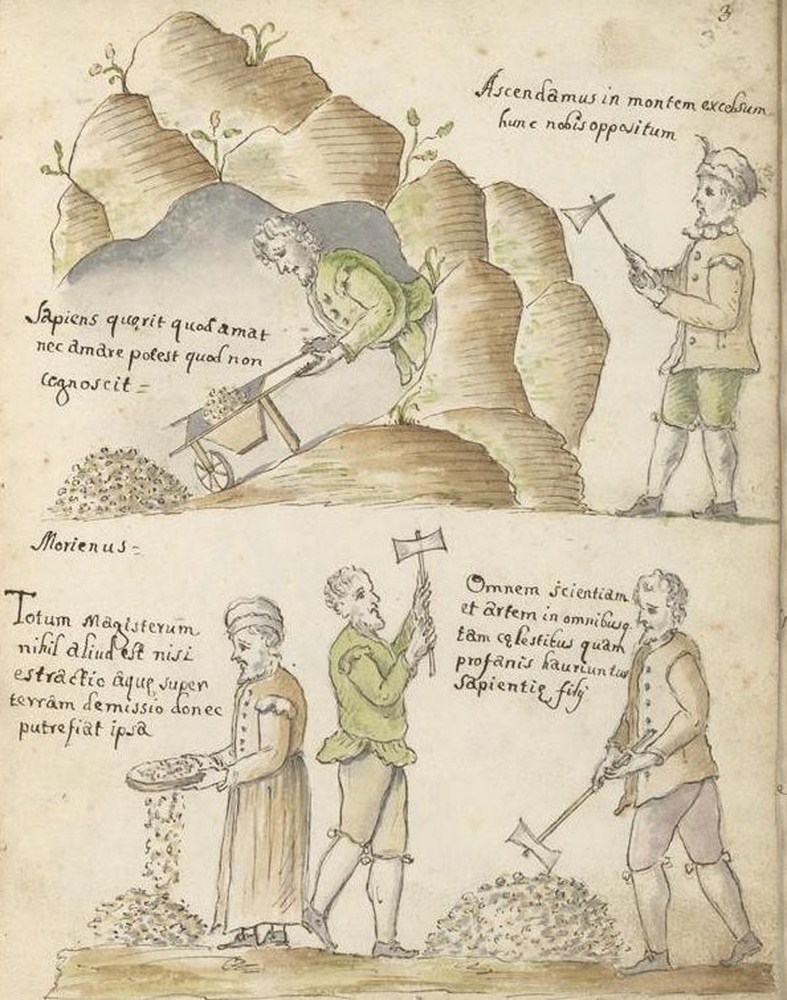 3
Ascendamus in montem excelsum
hunc nobis oppositum
Sapiens quęrit quod amat
nec amare potest quod non
cognoscit =
Morienus =
Totum Magisterum
nihil aliud est nisi
estractio aquę super
terram demissio donec
putrefiat ipsa
Omnem scientiam
et artem in omnibusq.
tam cęlestibus quam
profanis hauriuntur
sapientię filÿ